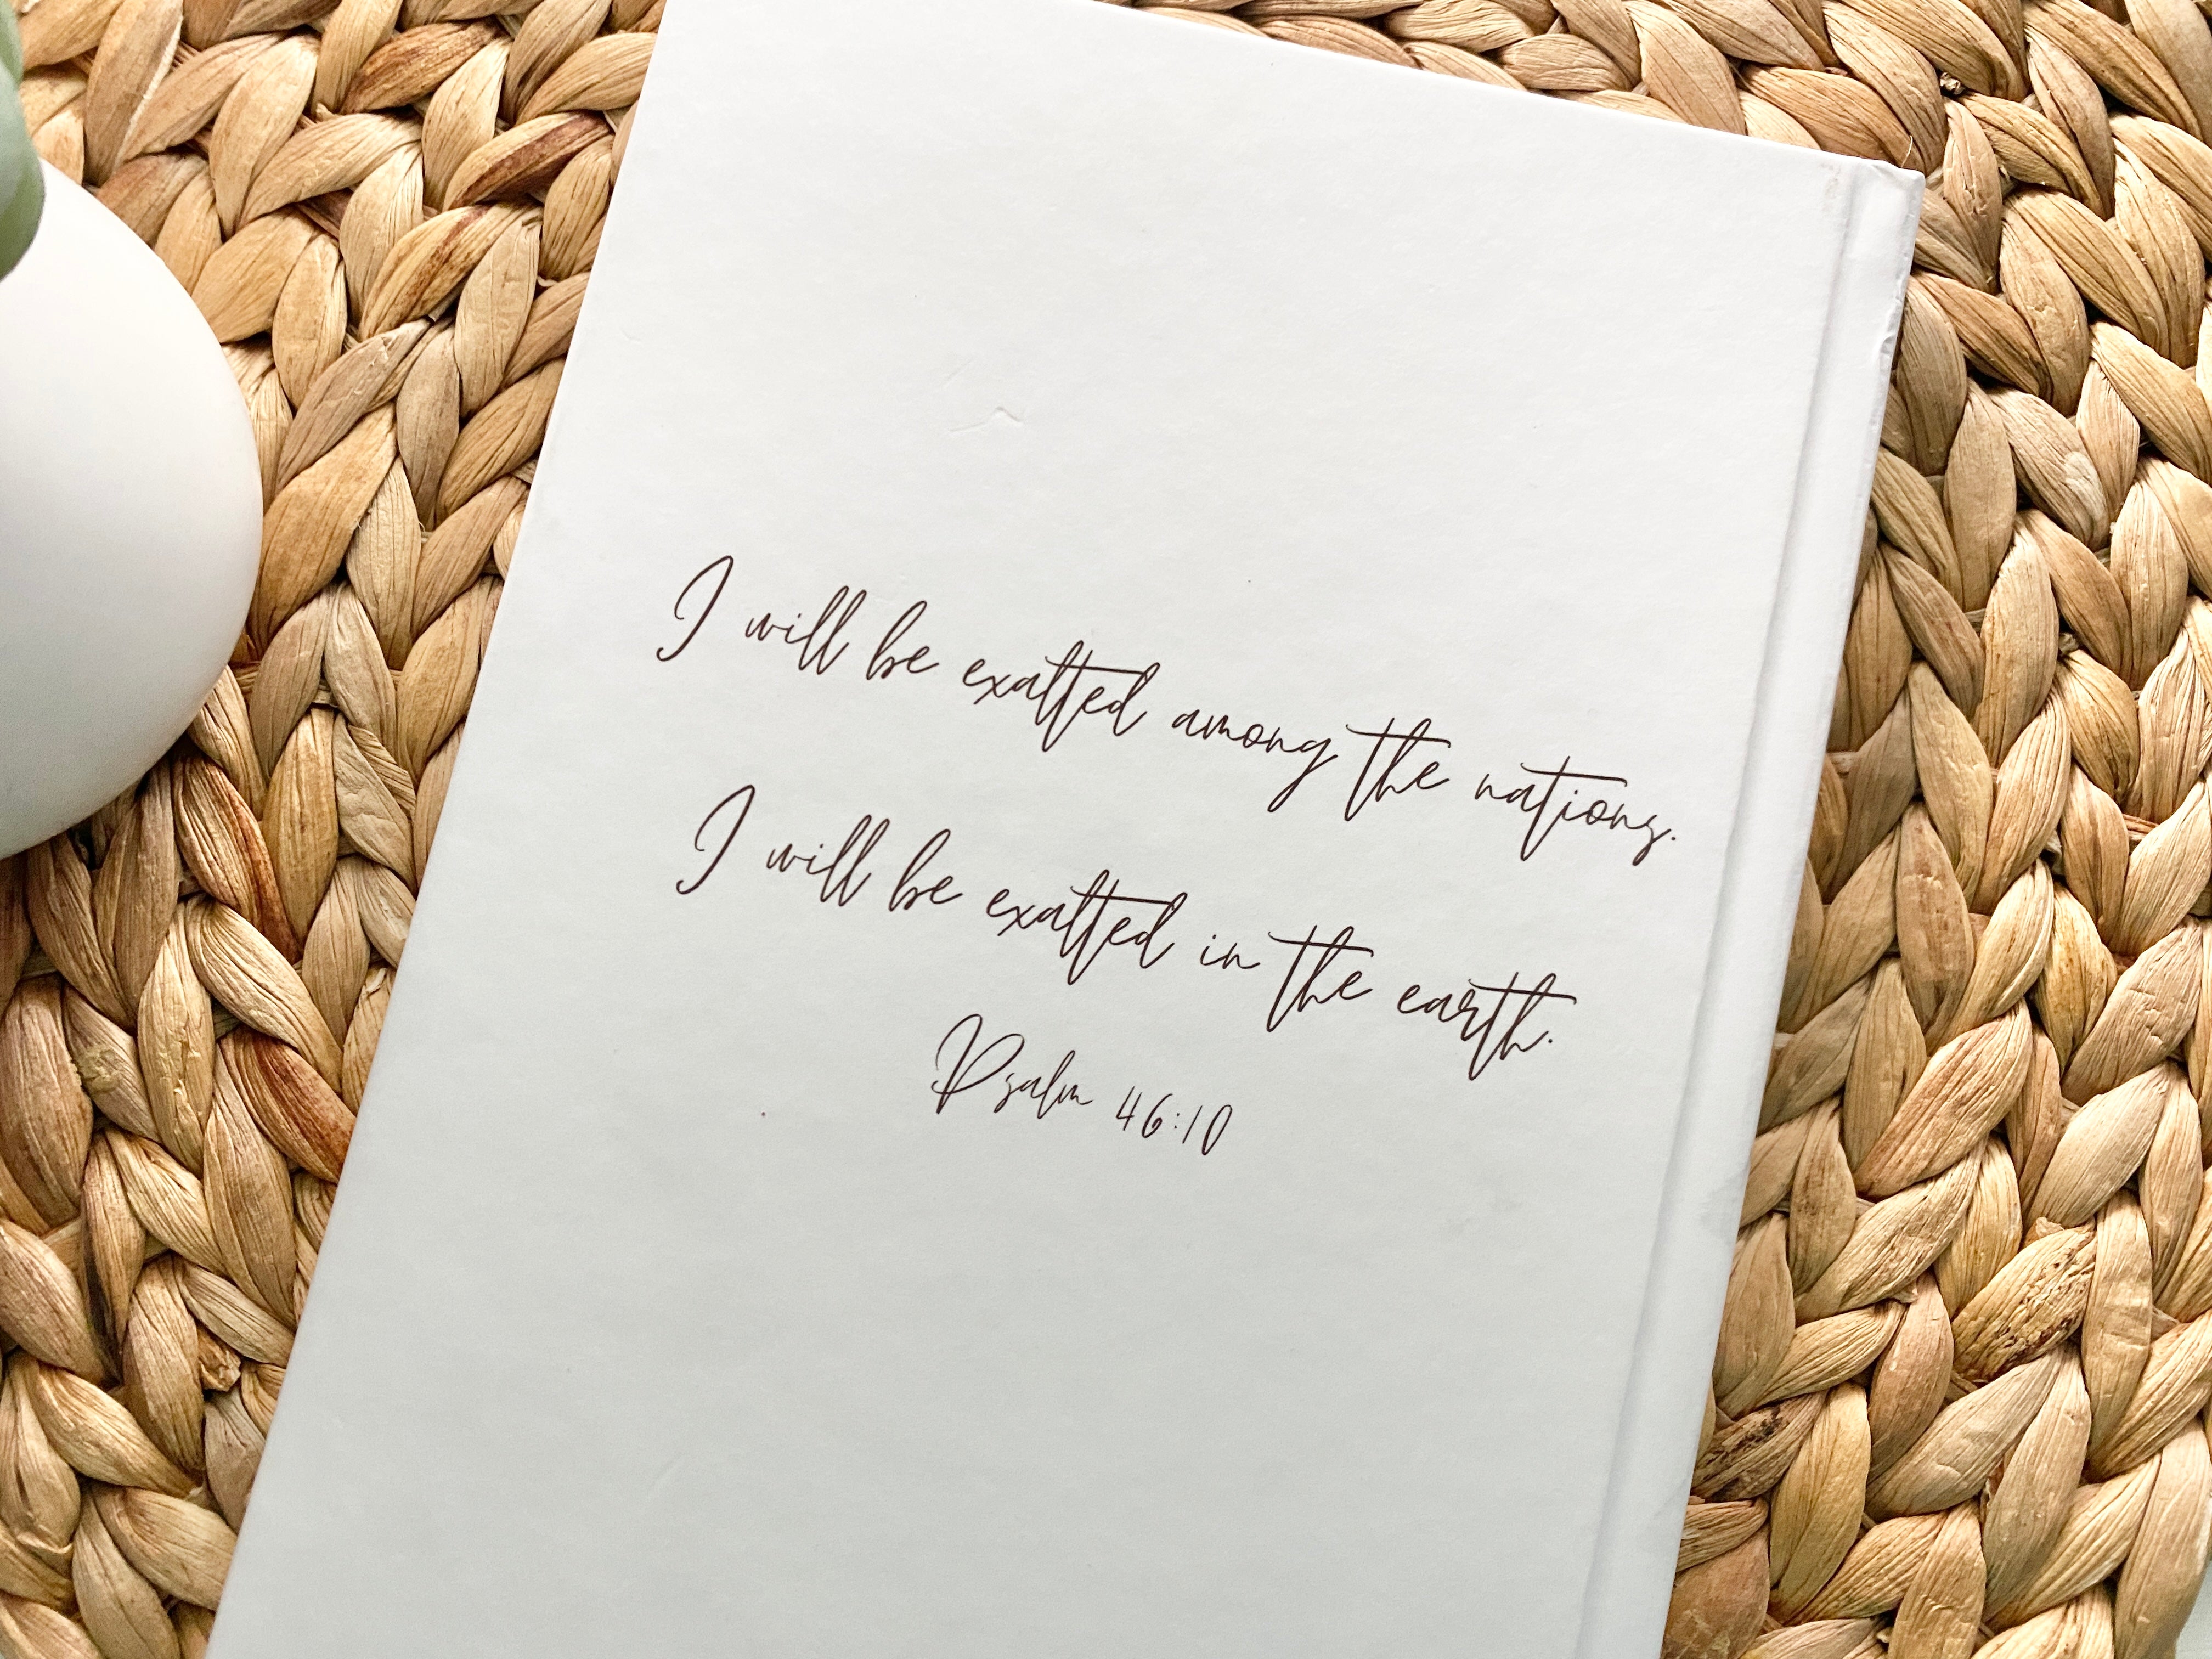 I will be exalted among the nations.
I will be exalted in the earth.
Psalm 46:10